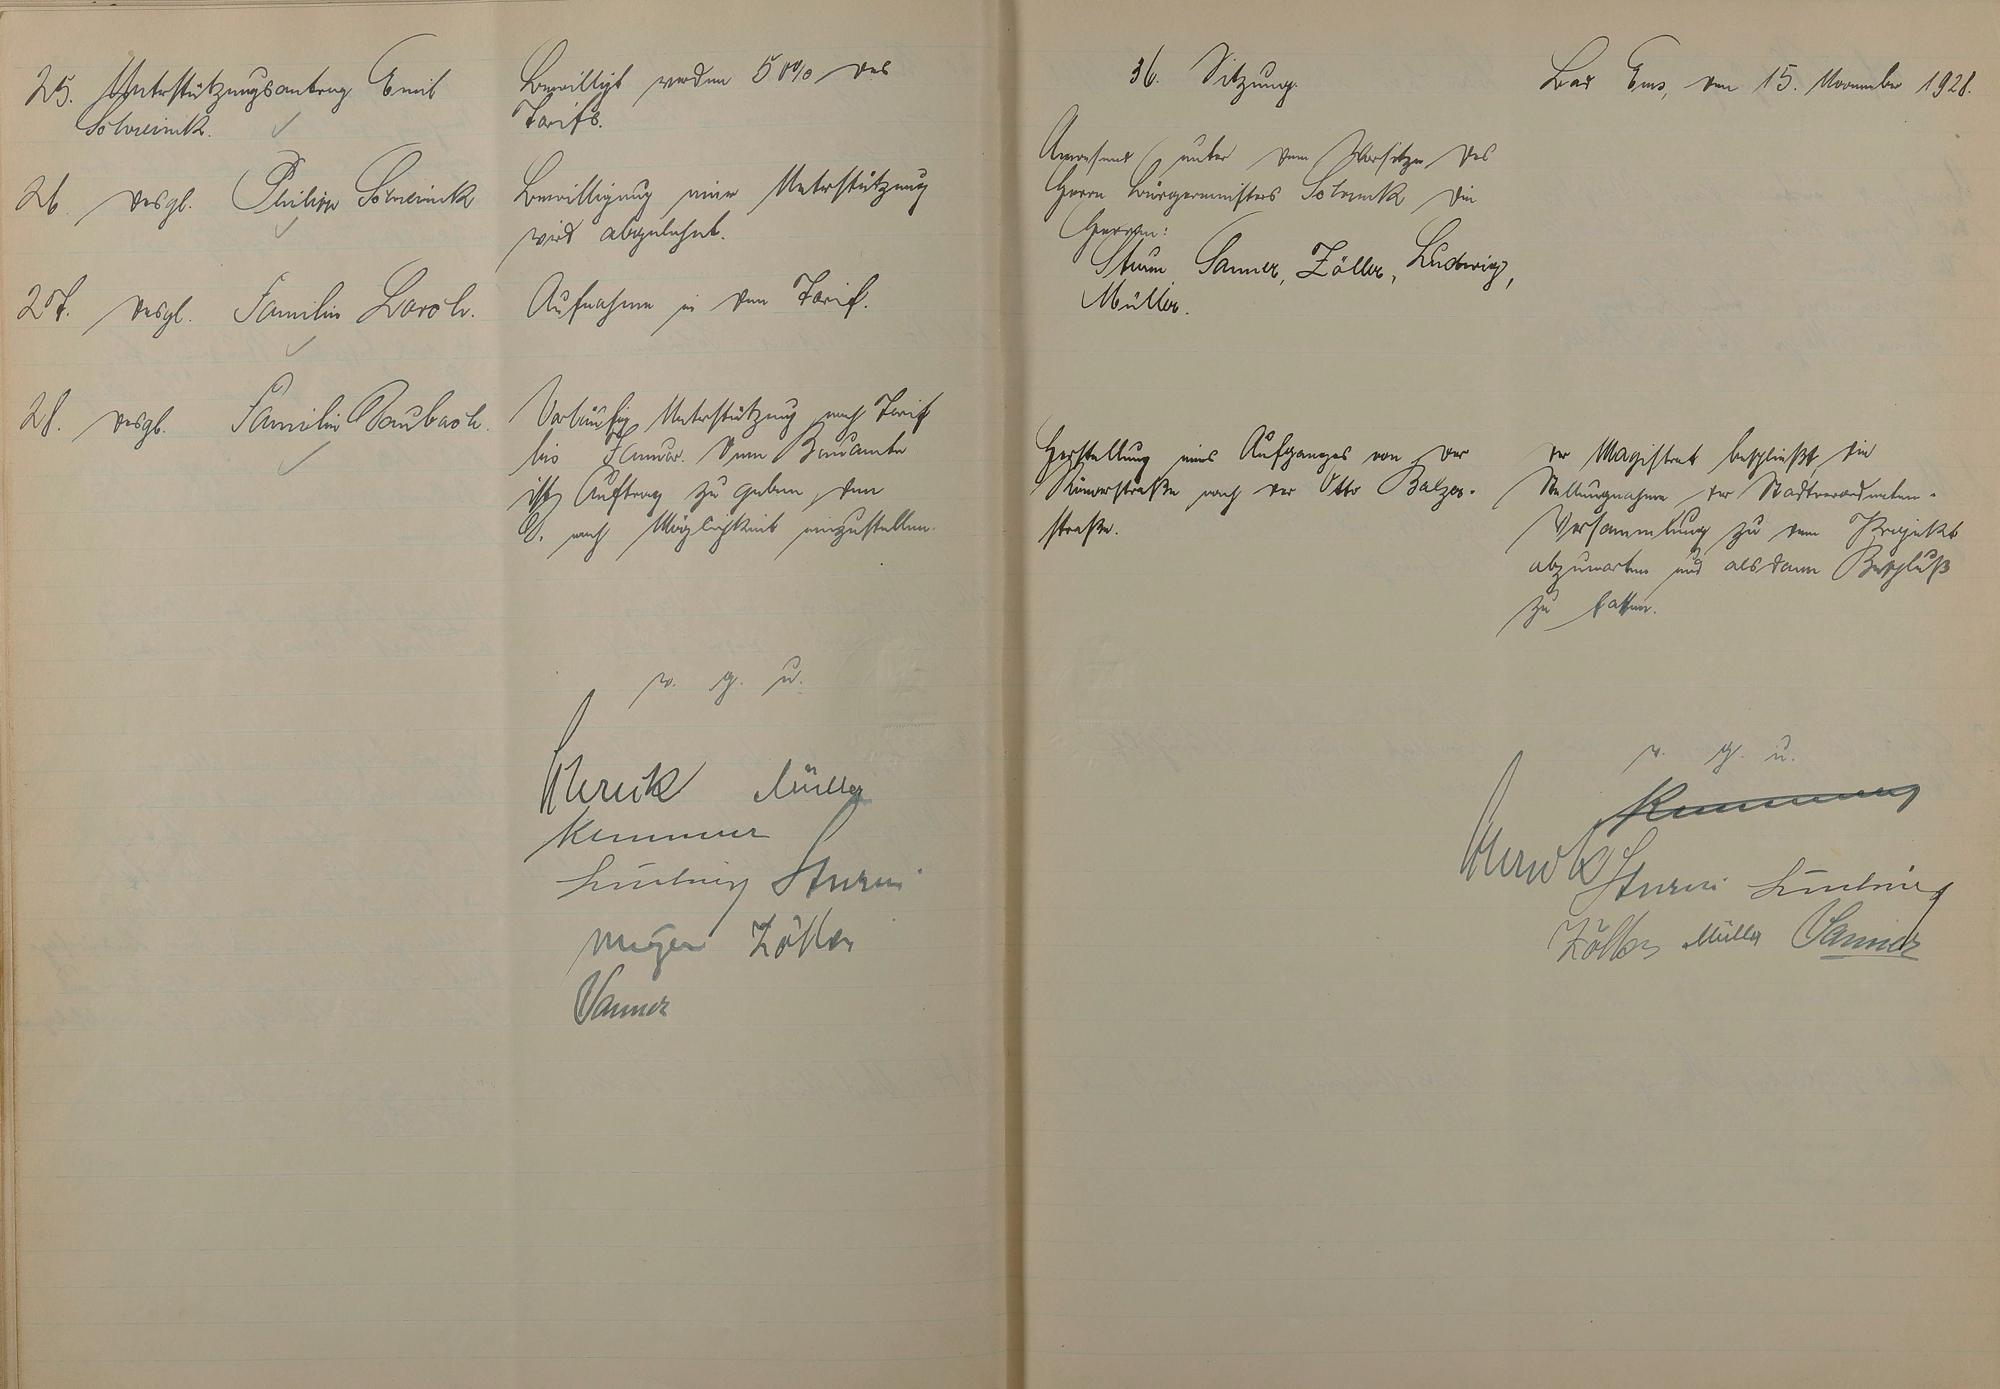 25. Unterstützungsantrag Emil
Schreinik.
Bewilligt werden 50% des
Tarifs.
26. desgl. Philipp Schreinik
Bewilligung einer Unterstützung
wird abgelehnt.
27. desgl. Familie Lasch.
Aufnahme in den Tarif.
28. desgl. Familie Baubach.
Vorläufig Unterstützung nach Tarif
bis Januar. Dem Bauamte
ist Auftrag zu geben, den
B. nach Möglichkeit einzustellen.
v. g. u.
Müller
Kemmer
Ludwig Sturm
Meyer Zöller
Sanner
36. Sitzung.
Bad Ems, den 15. November 1928.
Anwesend unter dem Vorsitze des
Herrn Bürgermeisters Schruck die
Herren:
Sturm Sanner, Zöller, Ludwig,
Müller.
Herstellung eines Aufganges von der
Römerstraße nach der Otto Balzer-
straße.
Der Magistrat beschließt die
Stellungnahme der Stadtverordneten-
Versammlung zu dem Projekt
abzuwarten und alsdann Beschluß
zu fassen.
v. g. u.
Sturm Ludwig
Zöller Müller Sanner